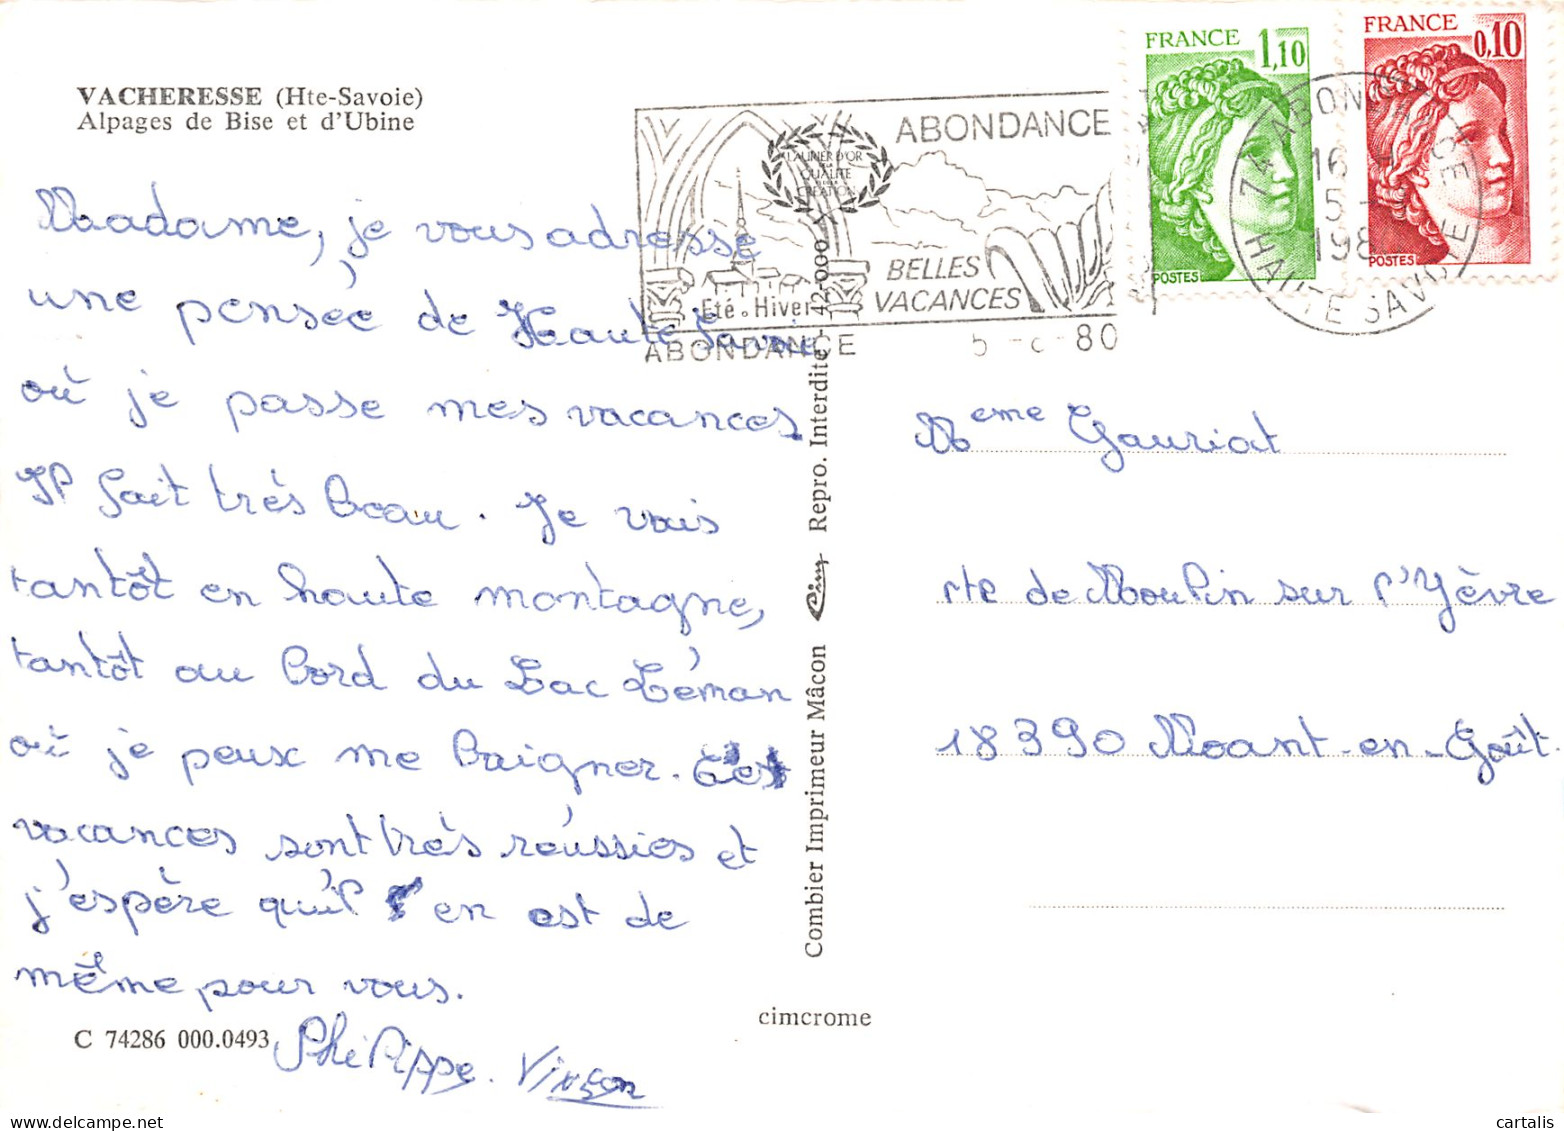 VACHERESSE (Hte-Savoie)
Alpages de Bise et d'Ubine
Madame, je vous adresse
une pensée de Haute Savoie
où je passe mes vacances
Il fait très beau. Je vais
tantôt en haute montagne,
tantôt au bord du Lac Léman
où je peux me baigner. Les
vacances sont très réussies et
j'espère qu'il en est de
même pour vous.
Philippe. Vinson
C 74286 000.0493
ABONDANCE
LAURIER D'OR
QUALITÉ
CRÉATION
BELLES
VACANCES
Eté . Hiver
ABONDANCE
80
FRANCE 1,10
POSTES
FRANCE 0,10
POSTES
74 ABONDANCE
16
5
198
HAUTE SAVOIE
Combier Imprimeur Mâcon Cim Repro. Interdite - 42-000
Meme Gauriat
rte de Moulin sur l'Yèvre
18390 Moant-en-Goût.
cimcrome
cartalis